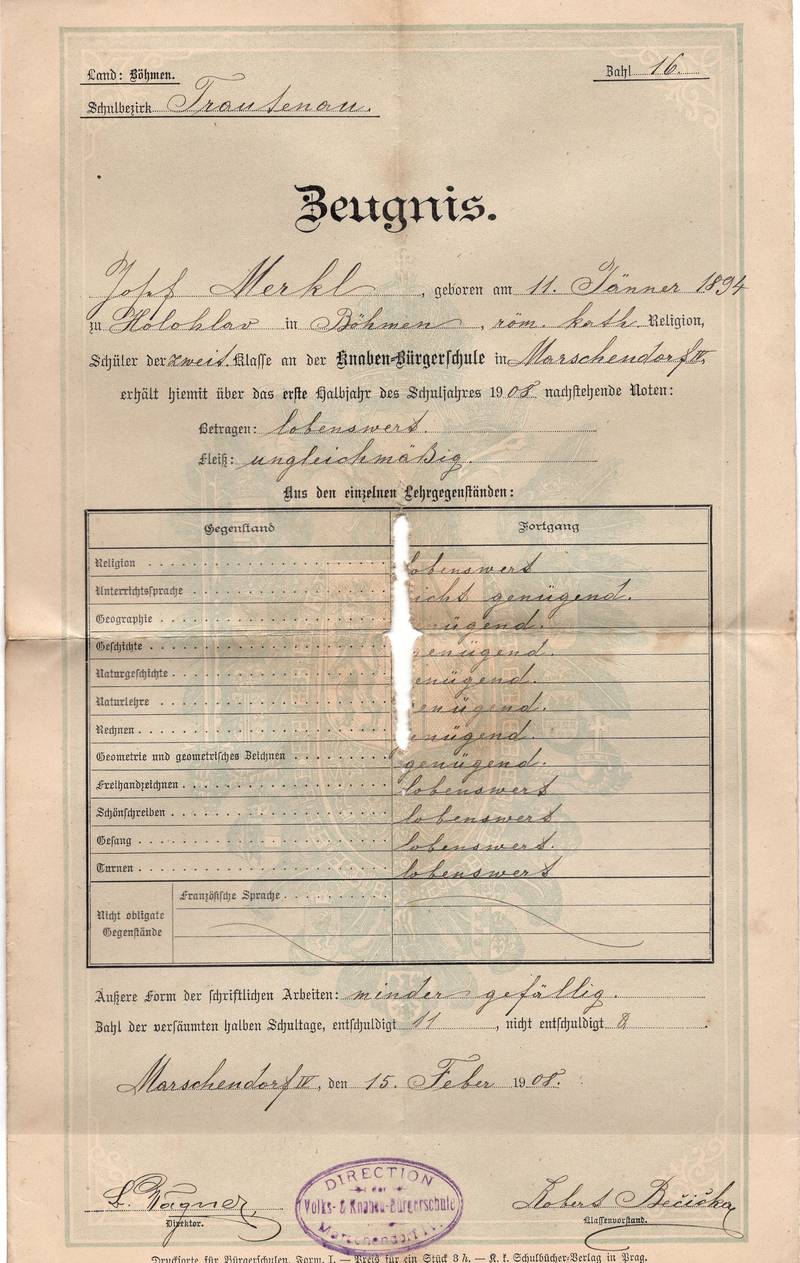 Land: Böhmen.
Zahl 16.
Schulbezirk Trautenau.
Zeugnis.
Josef Merkl, geboren am 11. Jänner 1894
zu Holohlav in Böhmen, röm. kath. Religion,
Schüler der zweit. Klasse an der Knaben-Bürgerschule in Marschendorf IV,
erhält hiemit über das erste Halbjahr des Schuljahres 1908 nachstehende Noten:
Betragen: lobenswert.
Fleiß: ungleichmäßig.
Aus den einzelnen Lehrgegenständen:
Gegenstand Fortgang
Religion lobenswert
Unterrichtssprache nicht genügend.
Geographie genügend.
Geschichte genügend.
Naturgeschichte genügend.
Naturlehre genügend.
Rechnen genügend.
Geometrie und geometrisches Zeichnen genügend.
Freihandzeichnen lobenswert
Schönschreiben lobenswert
Gesang lobenswert.
Turnen lobenswert
Nicht obligate Gegenstände
Französische Sprache
Äußere Form der schriftlichen Arbeiten: minder gefällig.
Zahl der versäumten halben Schultage, entschuldigt 11, nicht entschuldigt 8.
Marschendorf IV, den 15. Feber 1908.
DIRECTION
der
Volks- & Knaben-Bürgerschule
Marschendorf
L. Wagner
Direktor.
Robert Bečička
Klassenvorstand.
Drucksorte für Bürgerschulen, Form. I. — Preis für ein Stück 3 h. — K. k. Schulbücher-Verlag in Prag.